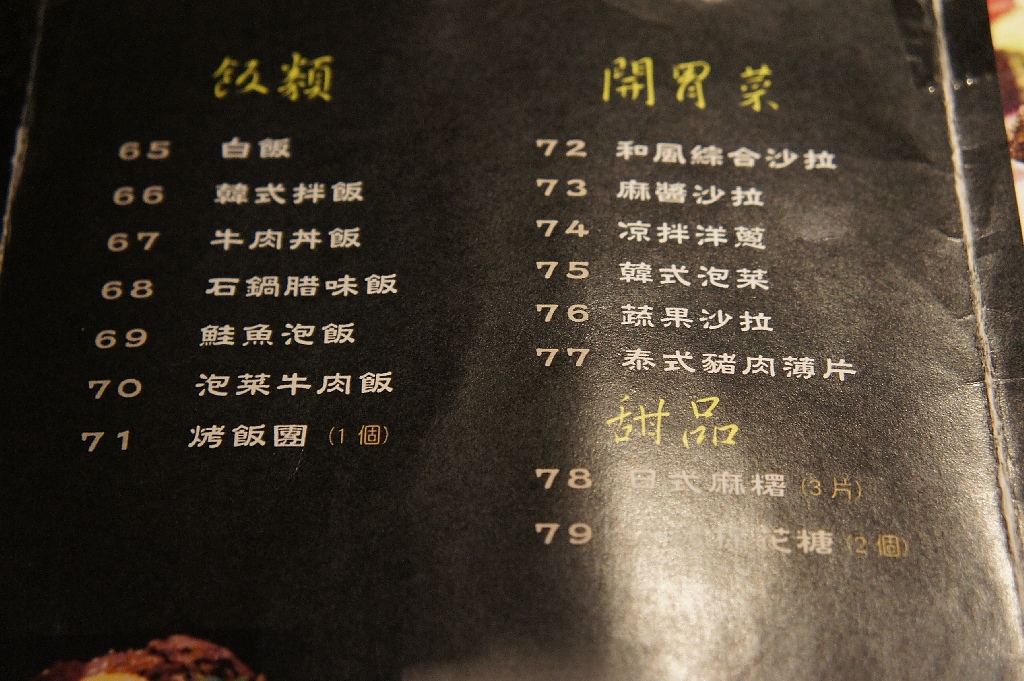 飯類
65 白飯
66 韓式拌飯
67 牛肉丼飯
68 石鍋腊味飯
69 鮭魚泡飯
70 泡菜牛肉飯
71 烤飯團 (1 個)
開胃菜
72 和風綜合沙拉
73 麻醬沙拉
74 凉拌洋蔥
75 韓式泡菜
76 蔬果沙拉
77 泰式豬肉薄片
甜品
78 日式麻糬 (3 片)
79 花糖 (2 個)